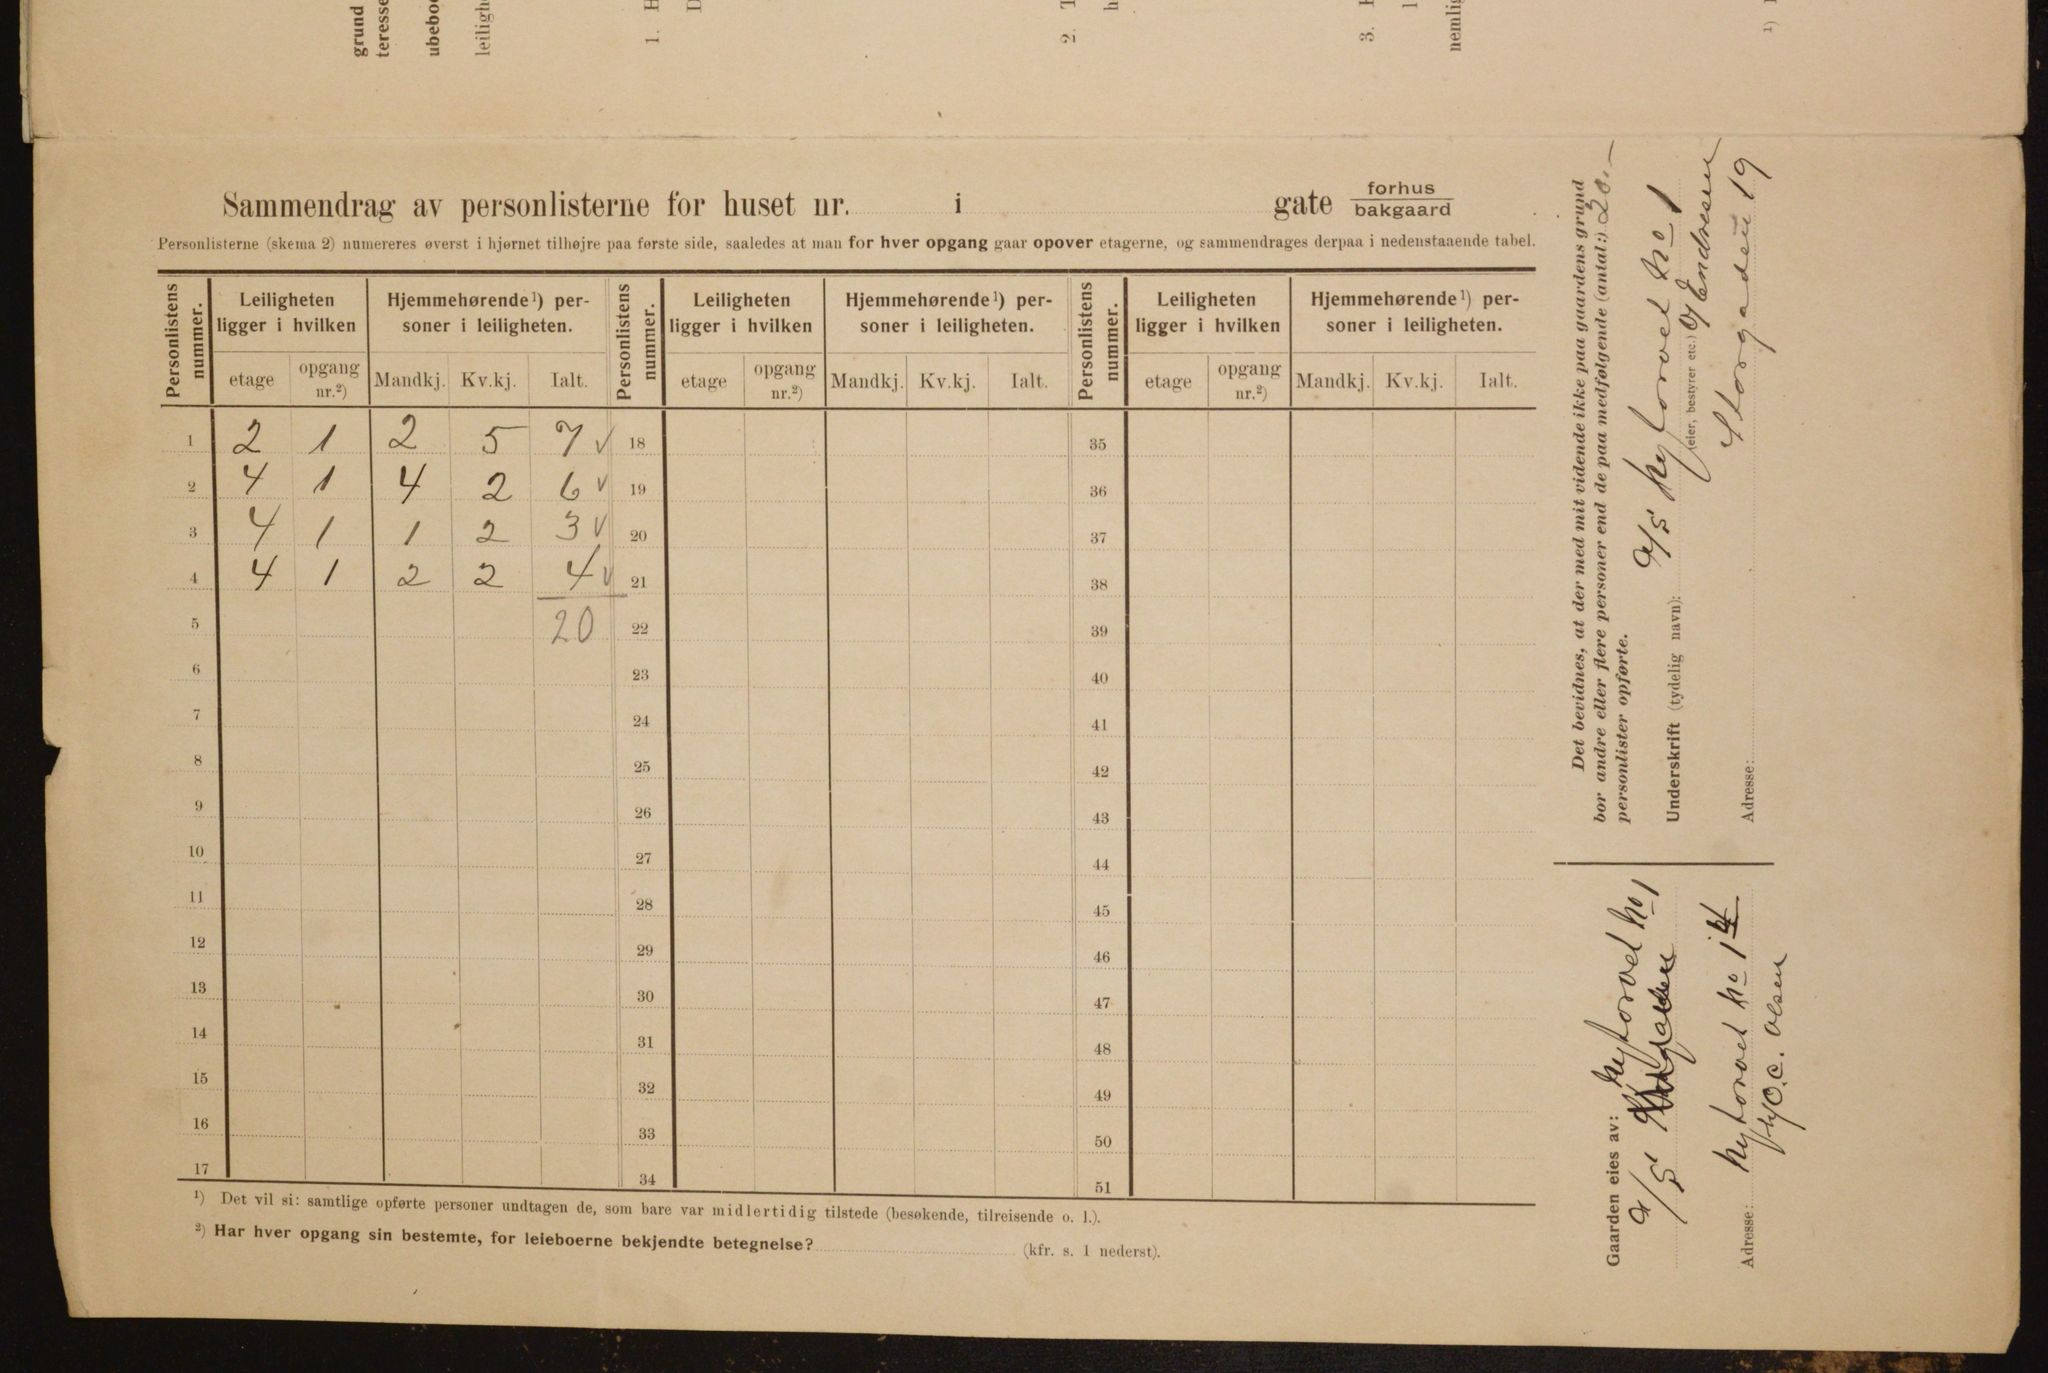 grund
teresse
ubeboe
leiligh
1. H
D
2. T
h
3. H
l
nemlig
1)
Sammendrag av personlisterne for huset nr. i gate forhus
bakgaard
Personlisterne (skema 2) numereres øverst i hjørnet tilhøjre paa første side, saaledes at man for hver opgang gaar opover etagerne, og sammendrages derpaa i nedenstaaende tabel.
Personlistens nummer. Leiligheten ligger i hvilken Hjemmehørende 1) personer i leiligheten. Personlistens nummer. Leiligheten ligger i hvilken Hjemmehørende 1) personer i leiligheten. Personlistens nummer. Leiligheten ligger i hvilken Hjemmehørende 1) personer i leiligheten.
etage opgang nr.2) Mandkj. Kv.kj. Ialt. etage opgang nr.2) Mandkj. Kv.kj. Ialt. etage opgang nr.2) Mandkj. Kv.kj. Ialt.
1 2 1 2 5 7 √ 18 35
2 4 1 4 2 6 √ 19 36
3 4 1 1 2 3 √ 20 37
4 4 1 2 2 4 √ 21 38
5 20 22 39
6 23 40
7 24 41
8 25 42
9 26 43
10 27 44
11 28 45
12 29 46
13 30 47
14 31 48
15 32 49
16 33 50
17 34 51
1) Det vil si: samtlige opførte personer undtagen de, som bare var midlertidig tilstede (besøkende, tilreisende o. l.).
2) Har hver opgang sin bestemte, for leieboerne bekjendte betegnelse? (kfr. s. 1 nederst).
Det bevidnes, at der med mit vidende ikke paa gaardens grund
bor andre eller flere personer end de paa medfølgende (antal:) 20.—
personlister opførte.
A/S Nytorvet No 1
Underskrift (tydelig navn):
(eier, bestyrer etc.) Endresen
Adresse: Storgaden 19
Gaarden eies av: Nytorvet No 1
A/S
Adresse: Nytorvet No 1
O.C. Olsen